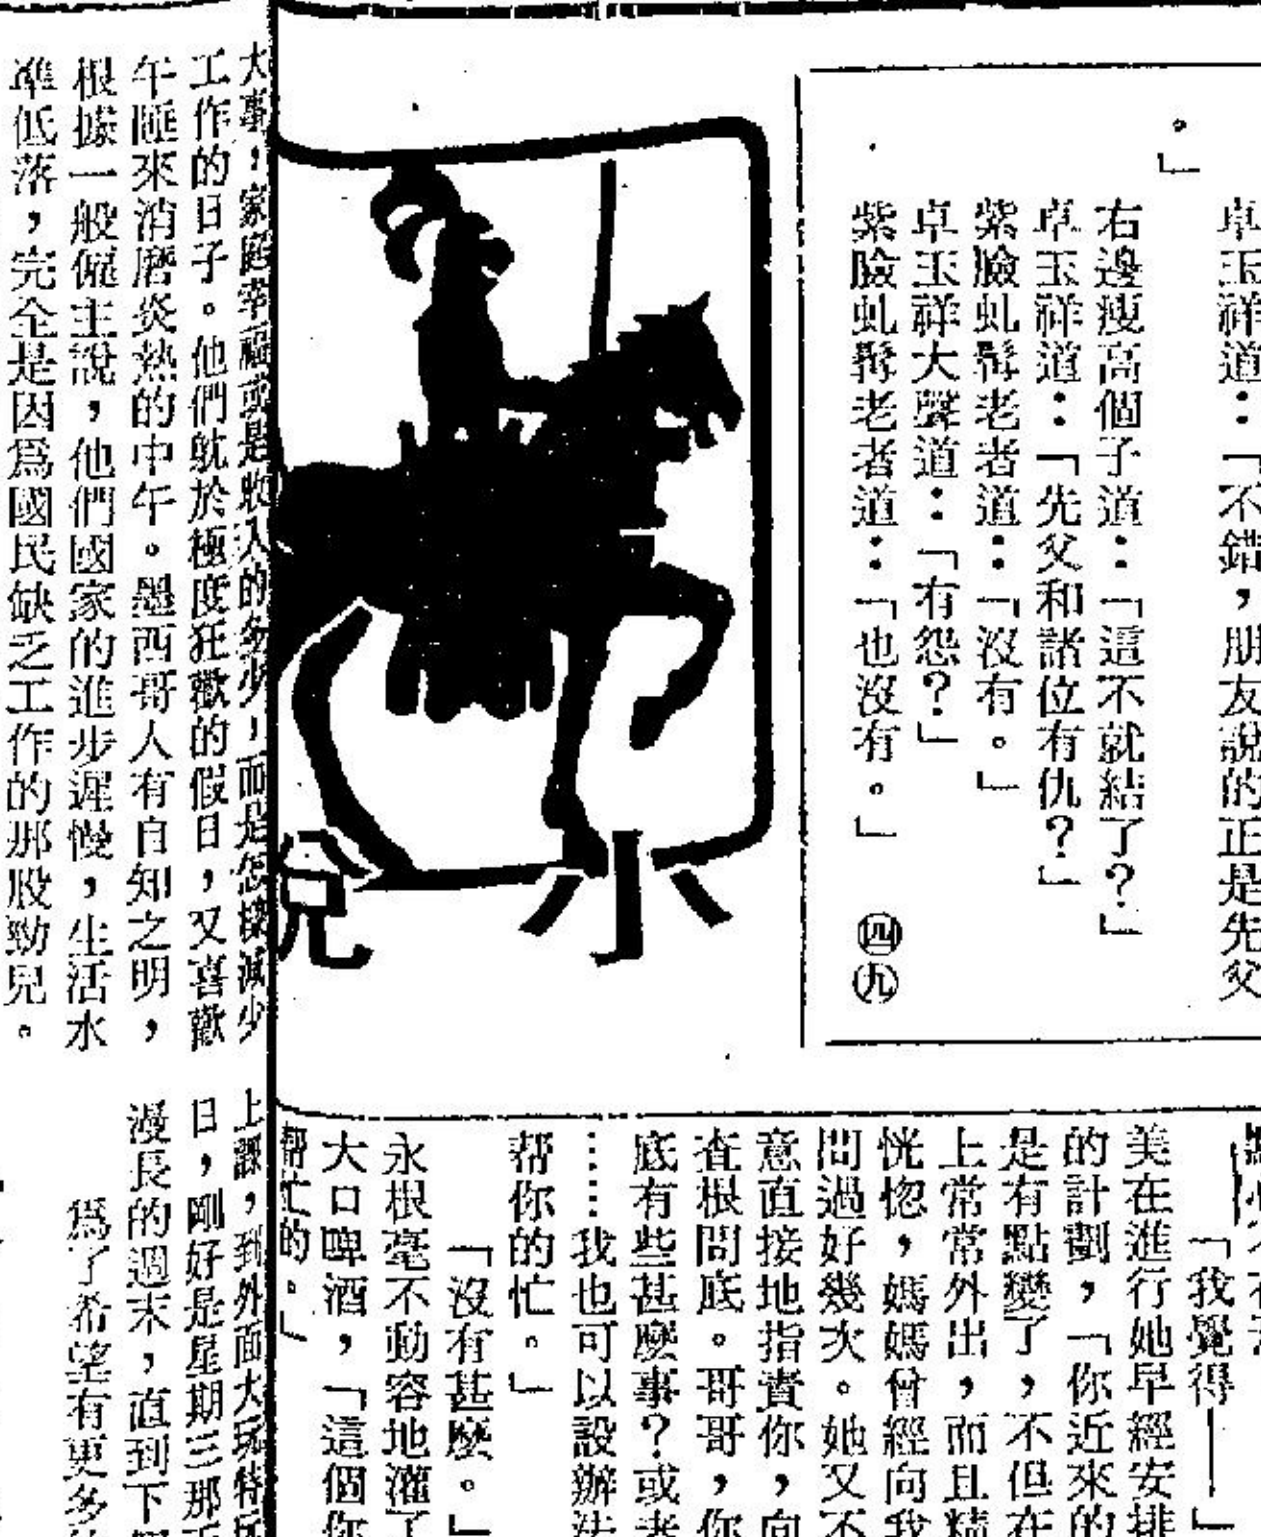 卓玉祥道：「不錯，朋友說的正是先父
。」
右邊瘦高個子道：「這不就結了？」
卓玉祥道：「先父和諸位有仇？」
紫臉虬髯老者道：「沒有。」
卓玉祥大聲道：「有怨？」
紫臉虬髯老者道：「也沒有。」
㊃㊈
小
說
「我覺得——」
美在進行她早經安排
的計劃，「你近來的
是有點變了，不但在
上常常外出，而且精
恍惚，媽媽曾經向我
問過好幾次。她又不
意直接地指責你，向
查根問底。哥哥，你
底有些甚麼事？或者
……我也可以設辦法
帮你的忙。」
「沒有甚麼。」
永根毫不動容地灌了
大口啤酒，「這個你
帮忙的。」
大事，家庭幸福或是收入的多少！而是怎樣減少
工作的日子。他們躭於極度狂歡的假日，又喜歡
午睡來消磨炎熱的中午。墨西哥人有自知之明，
根據一般僱主說，他們國家的進步遲慢，生活水
準低落，完全是因爲國民缺乏工作的那股勁兒。
上課，到外面大玩特玩
日，剛好是星期三那
漫長的週末，直到下
爲了希望有更多